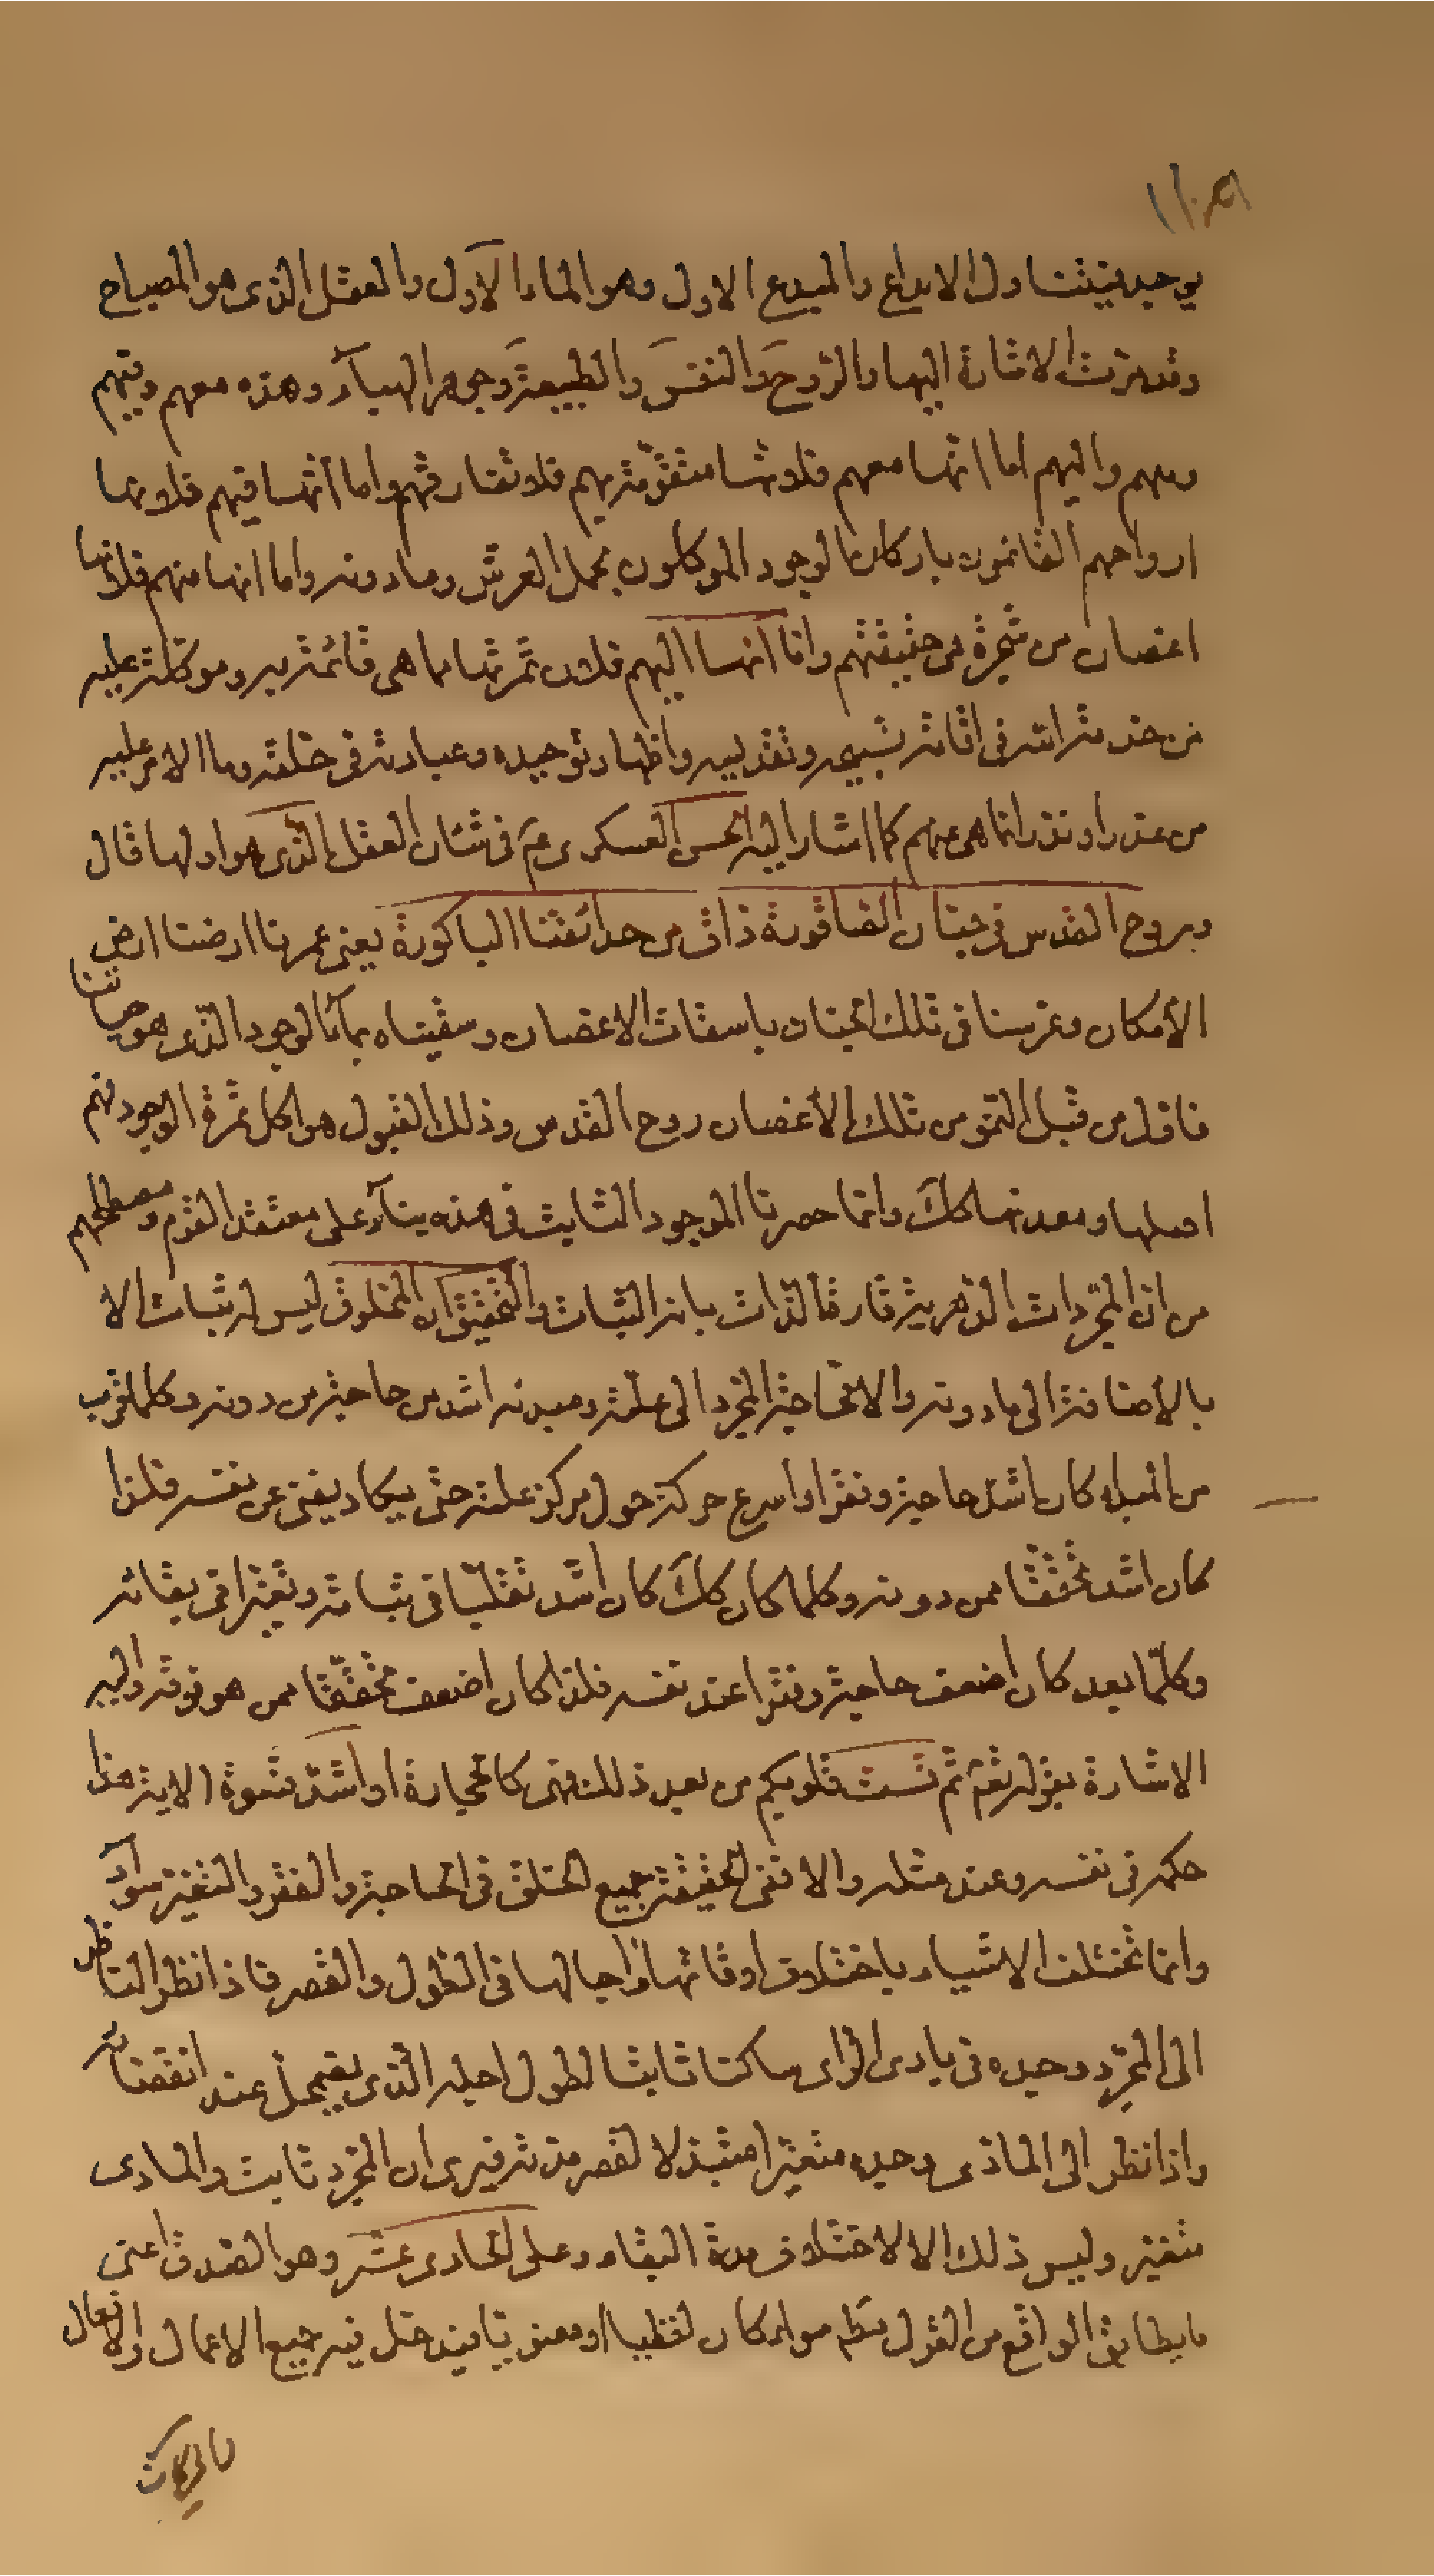 يوجد فيتناول الابداع والمبدع الاول وهو الماء الأول والعقل الذى هو المصباح
وقد مرت الاشارة اليها والروح والنفس والطبيعة وجوهر الهبآء وهذه معهم وفيهم
ومنهم واليهم اما انها معهم فلانها متقومة بهم فلا تفارقهم واما انها فيهم فلانها
ارواحهم القائمون باركان الوجود الموكلون بحمل العرش وما دونه واما انها منهم فلانها
اغصان من شجرة من حقيقتهم واما انها اليهم فلان ثمرتها ما هى قائمة به وموكلة عليه
من خدمة الله فى اقامة تسبيحه وتقديسه واظهار توحيده وعبادته فى خلقه وما الامر عليه
من عنده انما هى منهم كما اشار اليه الحسن العسكرى ع فى شان العقل الذى هو اولها قال
وروح القدس فى جنان الصاقورة ذاق من حدائقنا الباكورة يعنى عمرنا ارضنا ارض
الأمكان وغرسنا فى تلك الجنان باسقات الاغصان وسقيناه بمآء الوجود الذى هو حياتنا
فاول من قبل النمو من تلك الأغصان روح القدس وذلك القبول هو اكل ثمرة الوجود فهم
اصلها ومعدنها كك وانما حصرنا الموجود الثابت فى هذه بنآء على معتقد القوم ومصطلحهم
من ان المجردات الدهرية قارة الذات بانه الثبات والتحقيق ان المخلوق ليس له ثبات الا
بالأضافة الى ما دونه والا فحاجة المجرد الى علته ومبدئه اشد من حاجة من دونه وكلما قرب
من المبدء كان اشد حاجة وفقرا واسرع حركة حول مركز علته حتى يكاد يفنى عن نفسه فلذا
كان اشد تحققا ممن دونه وكلما كان كك كان اشد تقلبا فى ثباته وتغيرا فى بقائه
وكلما بعد كان اضعف حاجة وفقرا عند نفسه فلذا كان اضعف تحققا ممن هو فوقه واليه
الاشارة بقوله تعم ثم قست قلوبكم من بعد ذلك فهى كالحجارة او اشد قسوة الاية هذا
حكمه فى نفسه وعند مثله والا ففى الحقيقة جميع الخلق فى الحاجة والفقر والتغير سوآء
وانما تختلف الاشياء باختلاف اوقاتها واجالها فى الطول والقصر فاذا نظر الناظر
الى المجرد وحده فى بادى الراى ساكنا ثابتا لطول اجله الذى يضمحل عند انقضائه
واذا نظر الى المادى وجده متغيرا متبدلا لقصر مدته فيرى ان المجرد ثابت والمادى
متغير وليس ذلك الا لاختلاف مدة البقاء وعلى الحادى عشر وهو الصدق اعنى
ما يطابق الواقع من القول سواء كان لفظيا او معنويا فيدخل فيه جميع الاعمال والافعال